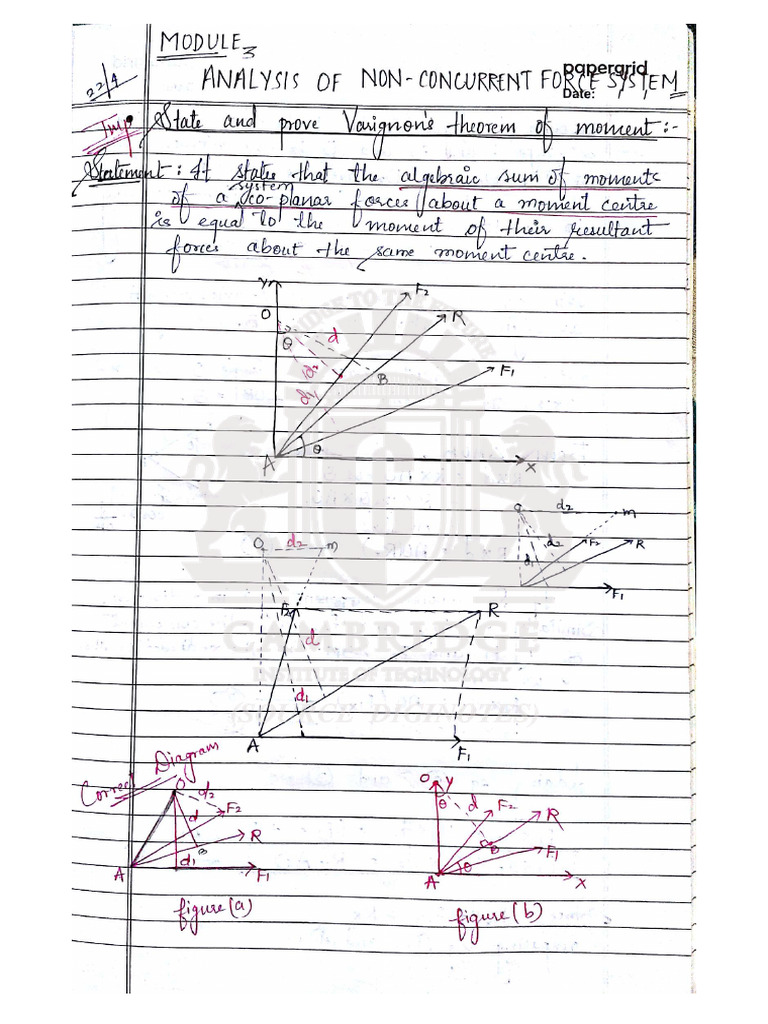 MODULE 3
papergrid
22/4
ANALYSIS OF NON-CONCURRENT FORCE SYSTEM
Date:
Imp State and prove Varignon's theorem of moment :-
Statement : It states that the algebraic sum of moments
system
of a co-planar forces about a moment centre
is equal to the moment of their resultant
forces about the same moment centre.
Y
F2
O
R
θ
d
d2
B
F1
d1
A
θ
X
BRIDGE TO THE FUTURE
O d2 m
d2 F2 R
d1
F1
O d2 m
F2
R
CAMBRIDGE
d
INSTITUTE OF TECHNOLOGY
d1
(SOURCE DIGINOTES)
A
F1
Correct Diagram
O d2
F2
d
R
B
A d1 F1
figure (a)
O Y
θ d F2
R
B
F1
A θ
X
figure (b)